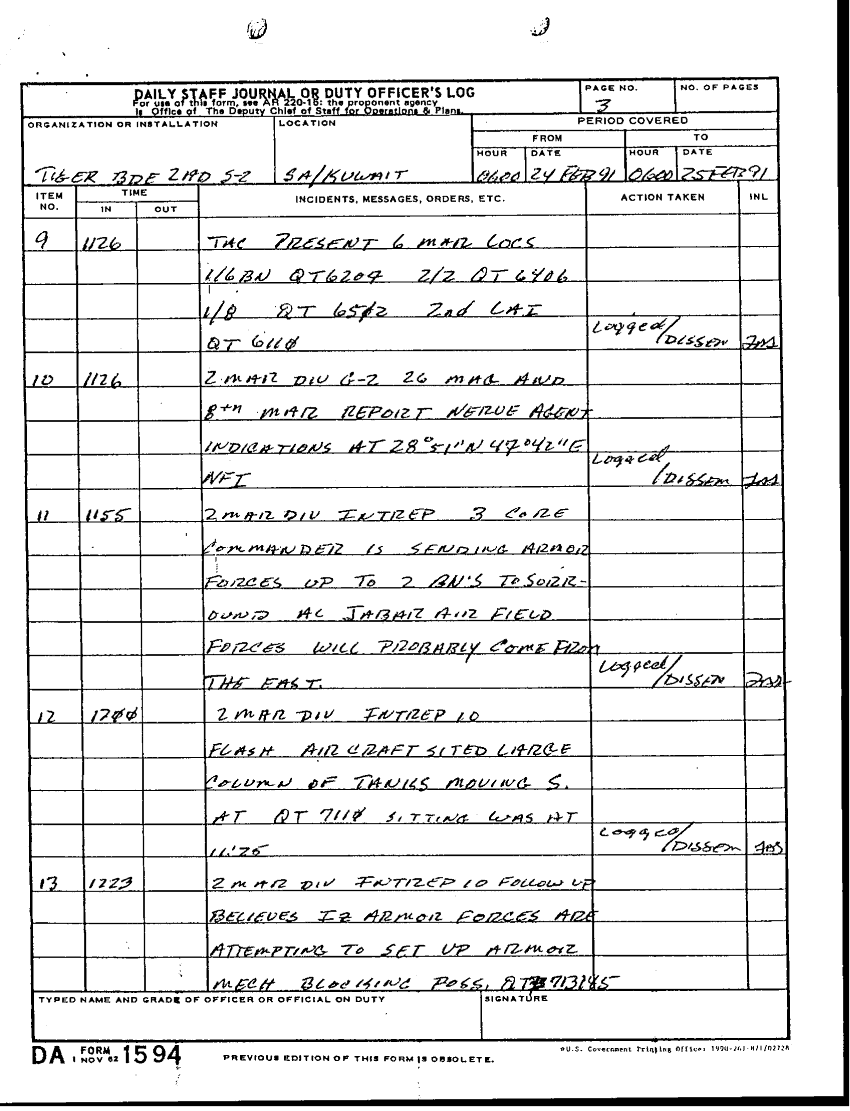 DAILY STAFF JOURNAL OR DUTY OFFICER'S LOG
For use of this form, see AR 220-15; the proponent agency
is Office of The Deputy Chief of Staff for Operations & Plans.
PAGE NO.
3
NO. OF PAGES
ORGANIZATION OR INSTALLATION
TIGER BDE 2AD S-2
LOCATION
SA/KUWAIT
PERIOD COVERED
FROM
TO
HOUR DATE HOUR DATE
0600 24 FEB 91 0600 25 FEB 91
ITEM NO. TIME INCIDENTS, MESSAGES, ORDERS, ETC. ACTION TAKEN INL
IN OUT
9 1126 TAC PRESENT 6 MAR LOCS
1/6 BN QT6204 2/2 QT 6406
1/8 QT 6512 2nd LAI
QT 611Ø Logged/DISSEM
10 1126 2 MAR DIV G-2 26 MAG AND
8th MAR REPORT NERVE AGENT
INDICATIONS AT 28°51"N 47°42"E
NFI Logged/DISSEM
11 1155 2 MAR DIV INTREP 3 CORE
COMMANDER IS SENDING ARMOR
FORCES UP TO 2 BN'S TO SORR-
OUND AL JABAR AIR FIELD
FORCES WILL PROBABLY COME FROM
THE EAST. Logged/DISSEM
12 12ØØ 2 MAR DIV INTREP 10
FLASH AIR CRAFT SITED LARGE
COLUMN OF TANKS MOVING S.
AT QT 711Ø SITTING WAS AT
11:25 Logged/DISSEM
13 1223 2 MAR DIV INTREP 10 FOLLOW UP
BELIEVES IZ ARMOR FORCES ARE
ATTEMPTING TO SET UP ARMOR
MECH BLOCKING POSS,
TYPED NAME AND GRADE OF OFFICER OR OFFICIAL ON DUTY
SIGNATURE
DA FORM 1594
1 NOV 62
PREVIOUS EDITION OF THIS FORM IS OBSOLETE.
U.S. Government Printing Office: